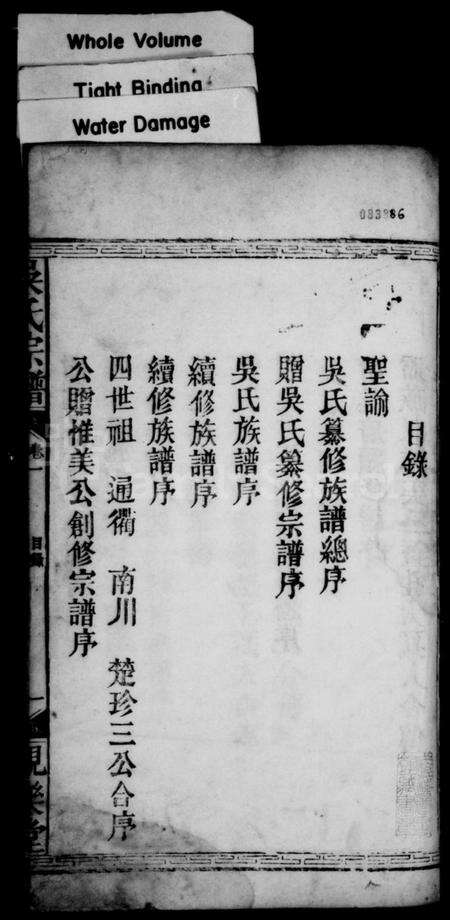 Whole Volume
Tight Binding
Water Damage
083886
目錄
聖諭
吳氏纂修族譜總序
贈吳氏纂修宗譜序
吳氏族譜序
續修族譜序
續修族譜序
四世祖 通衢 南川 楚珍三公合序
公贈惟美公創修宗譜序
吳氏宗譜 卷一 目錄 一